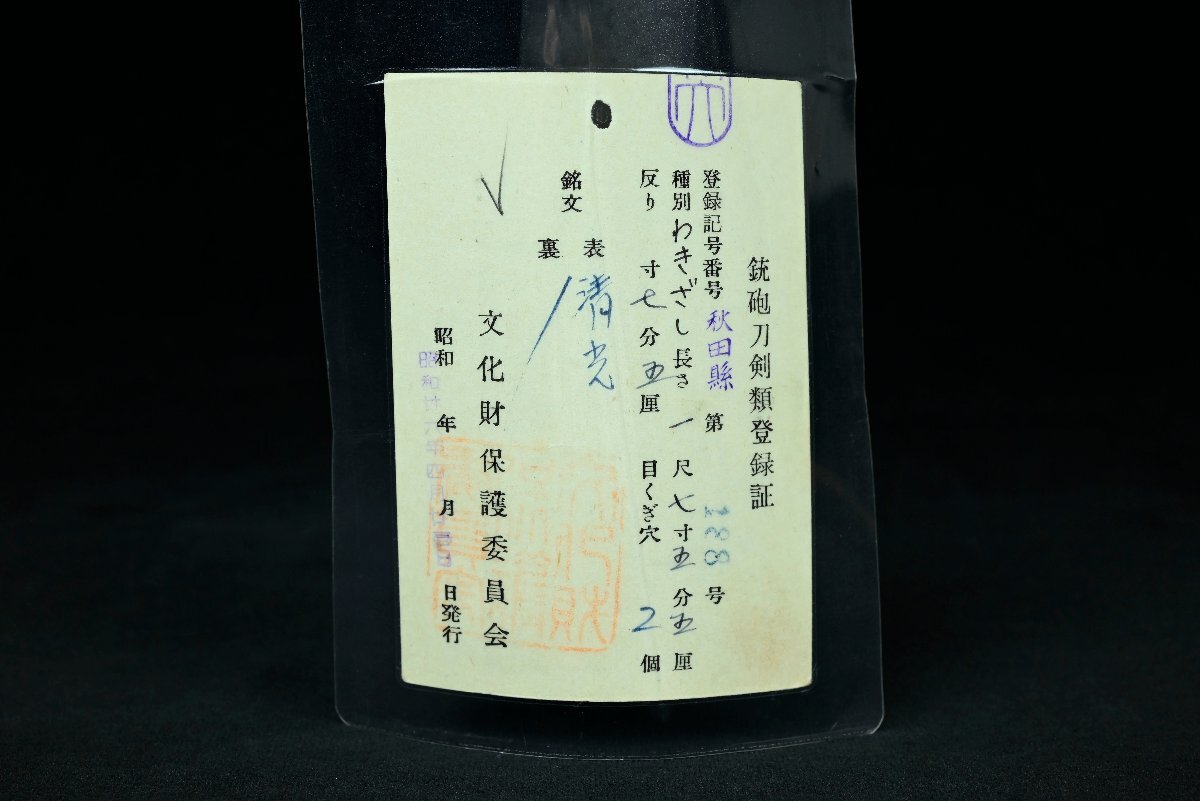 銃砲刀剣類登録証
登録記号番号 秋田縣 第 881 号
種別 わきざし 長さ 一尺七寸五分五厘
反り 寸七分五厘 目くぎ穴 2個
銘文 表 清光
裏 /
文化財保護委員会
昭和 年 月 日発行